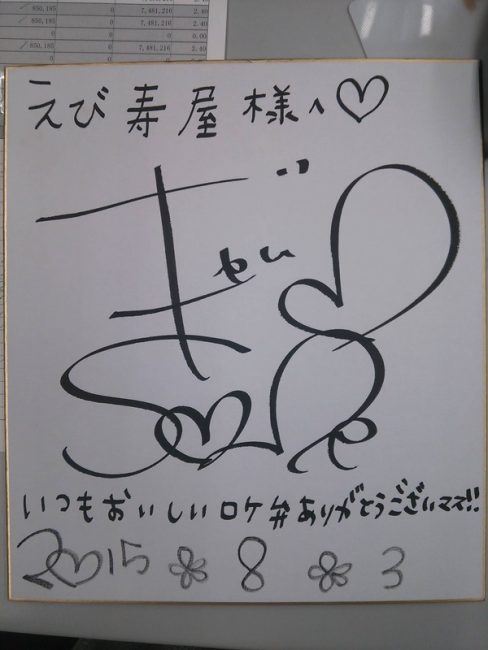 ／ 850,185 0 7,481,216 2.40
／ 850,185 0 7,481,216 2.40
0 0 0 0.00
／ 850,185 0 7,481,216 2.40
えび寿屋様へ♡
ぎぜい
いつもおいしいロケ弁ありがとうございマス!!
2015 8 3